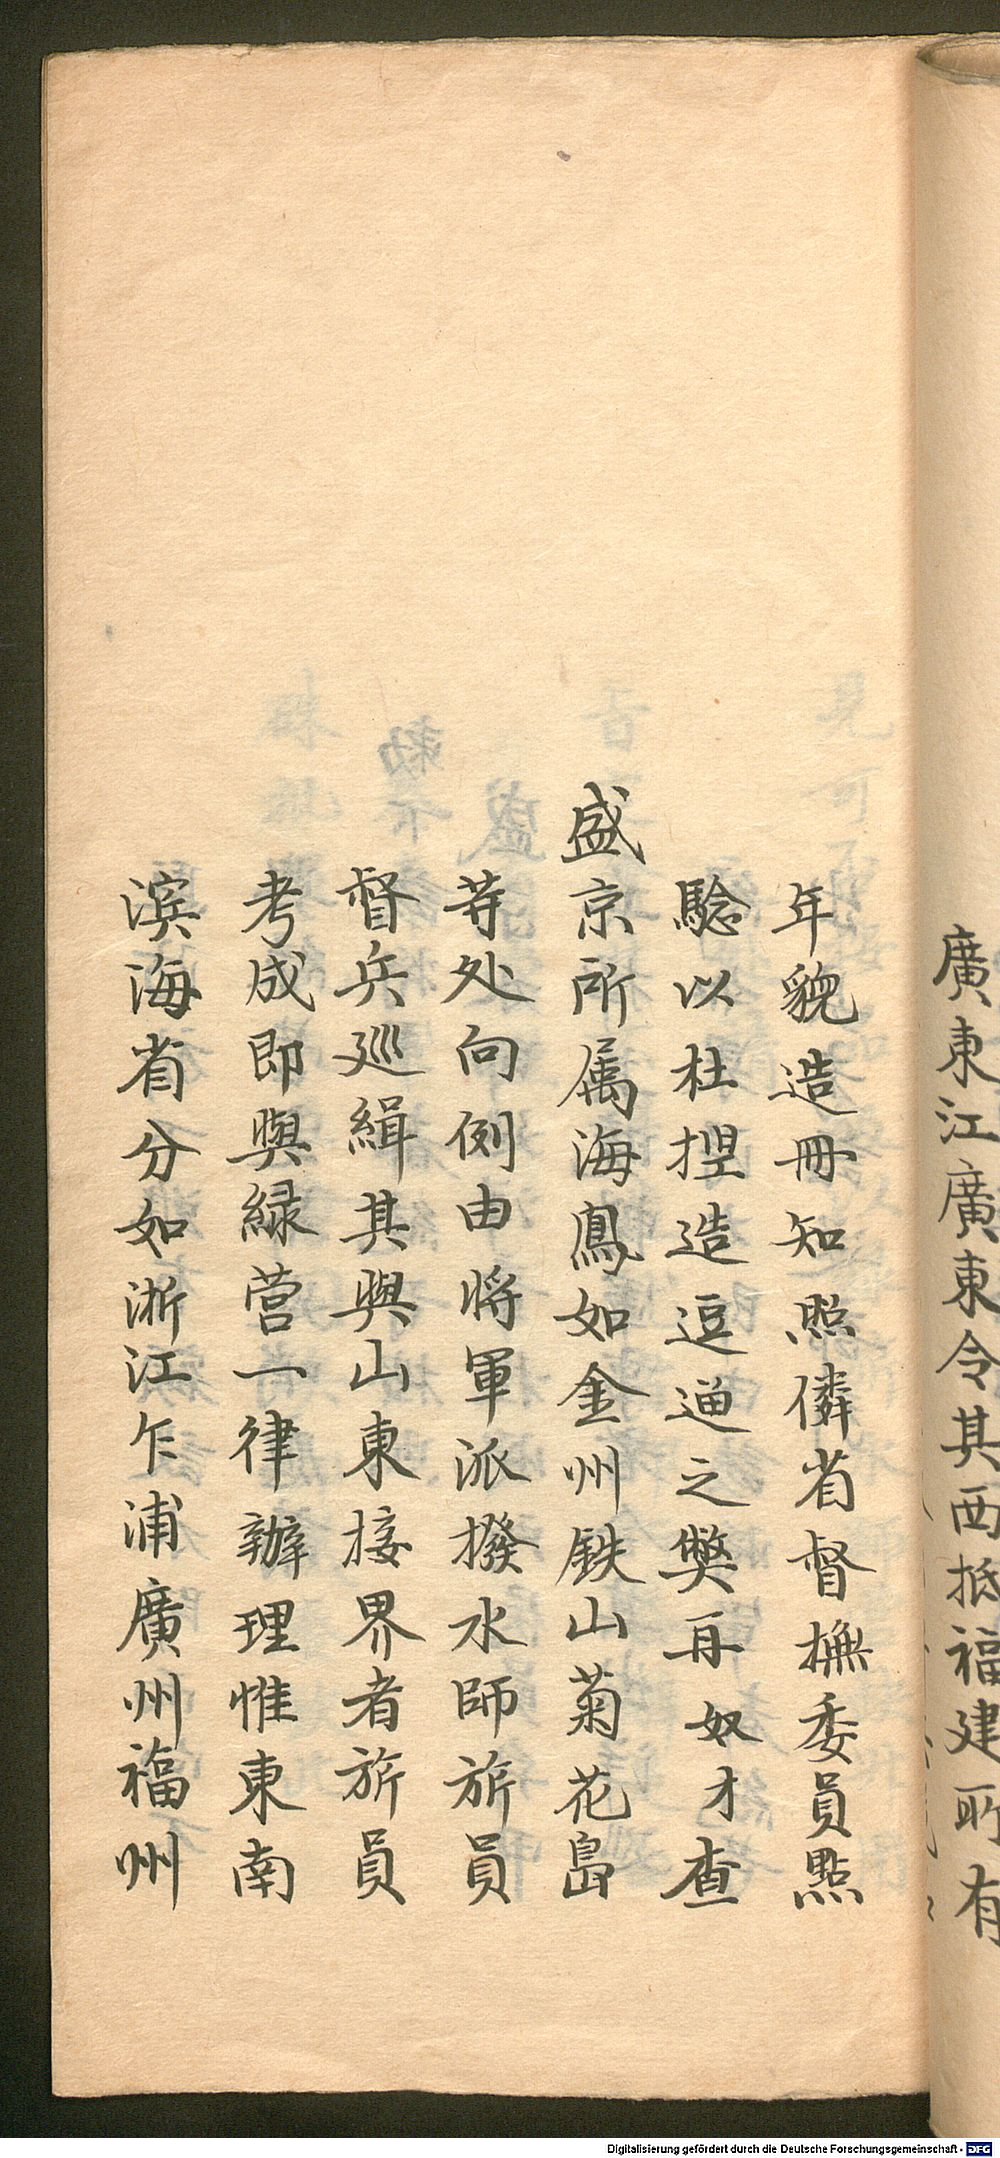 廣東江廣東令其西抵福建所有
年貌造冊知照僯省督撫委員點
騐以杜揑造逗遛之獘再奴才查
盛京所属海鳳如金州鉄山菊花島
䓁处向例由将軍派撥水師旂員
督兵廵緝其與山東接界者旂員
考成即與緑营一律辦理惟東南
滨海省分如浙江乍浦廣州福州
Digitalisierung gefördert durch die Deutsche Forschungsgemeinschaft - DFG